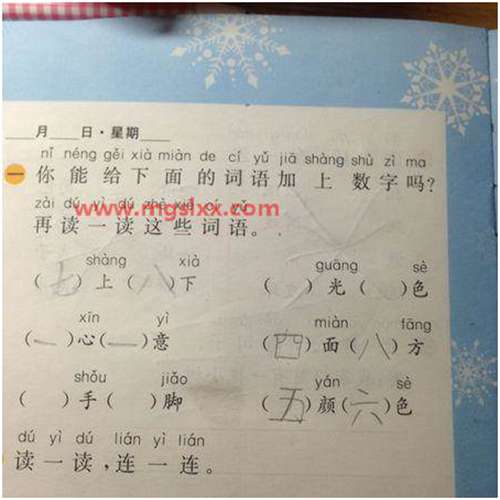 ____月____日·星期____
nǐ néng gěi xià miàn de cí yǔ jiā shàng shù zì ma
一 你能给下面的词语加上数字吗?
zài dú yì dú zhè xiē cí yǔ
www.mgslxx.com
再读一读这些词语。
shàng xià guāng sè
(七)上(八)下 ( )光( )色
xīn yì miàn fāng
(一)心(一)意 (四)面(八)方
shǒu jiǎo yán sè
( )手( )脚 (五)颜(六)色
dú yì dú lián yì lián
读一读,连一连。